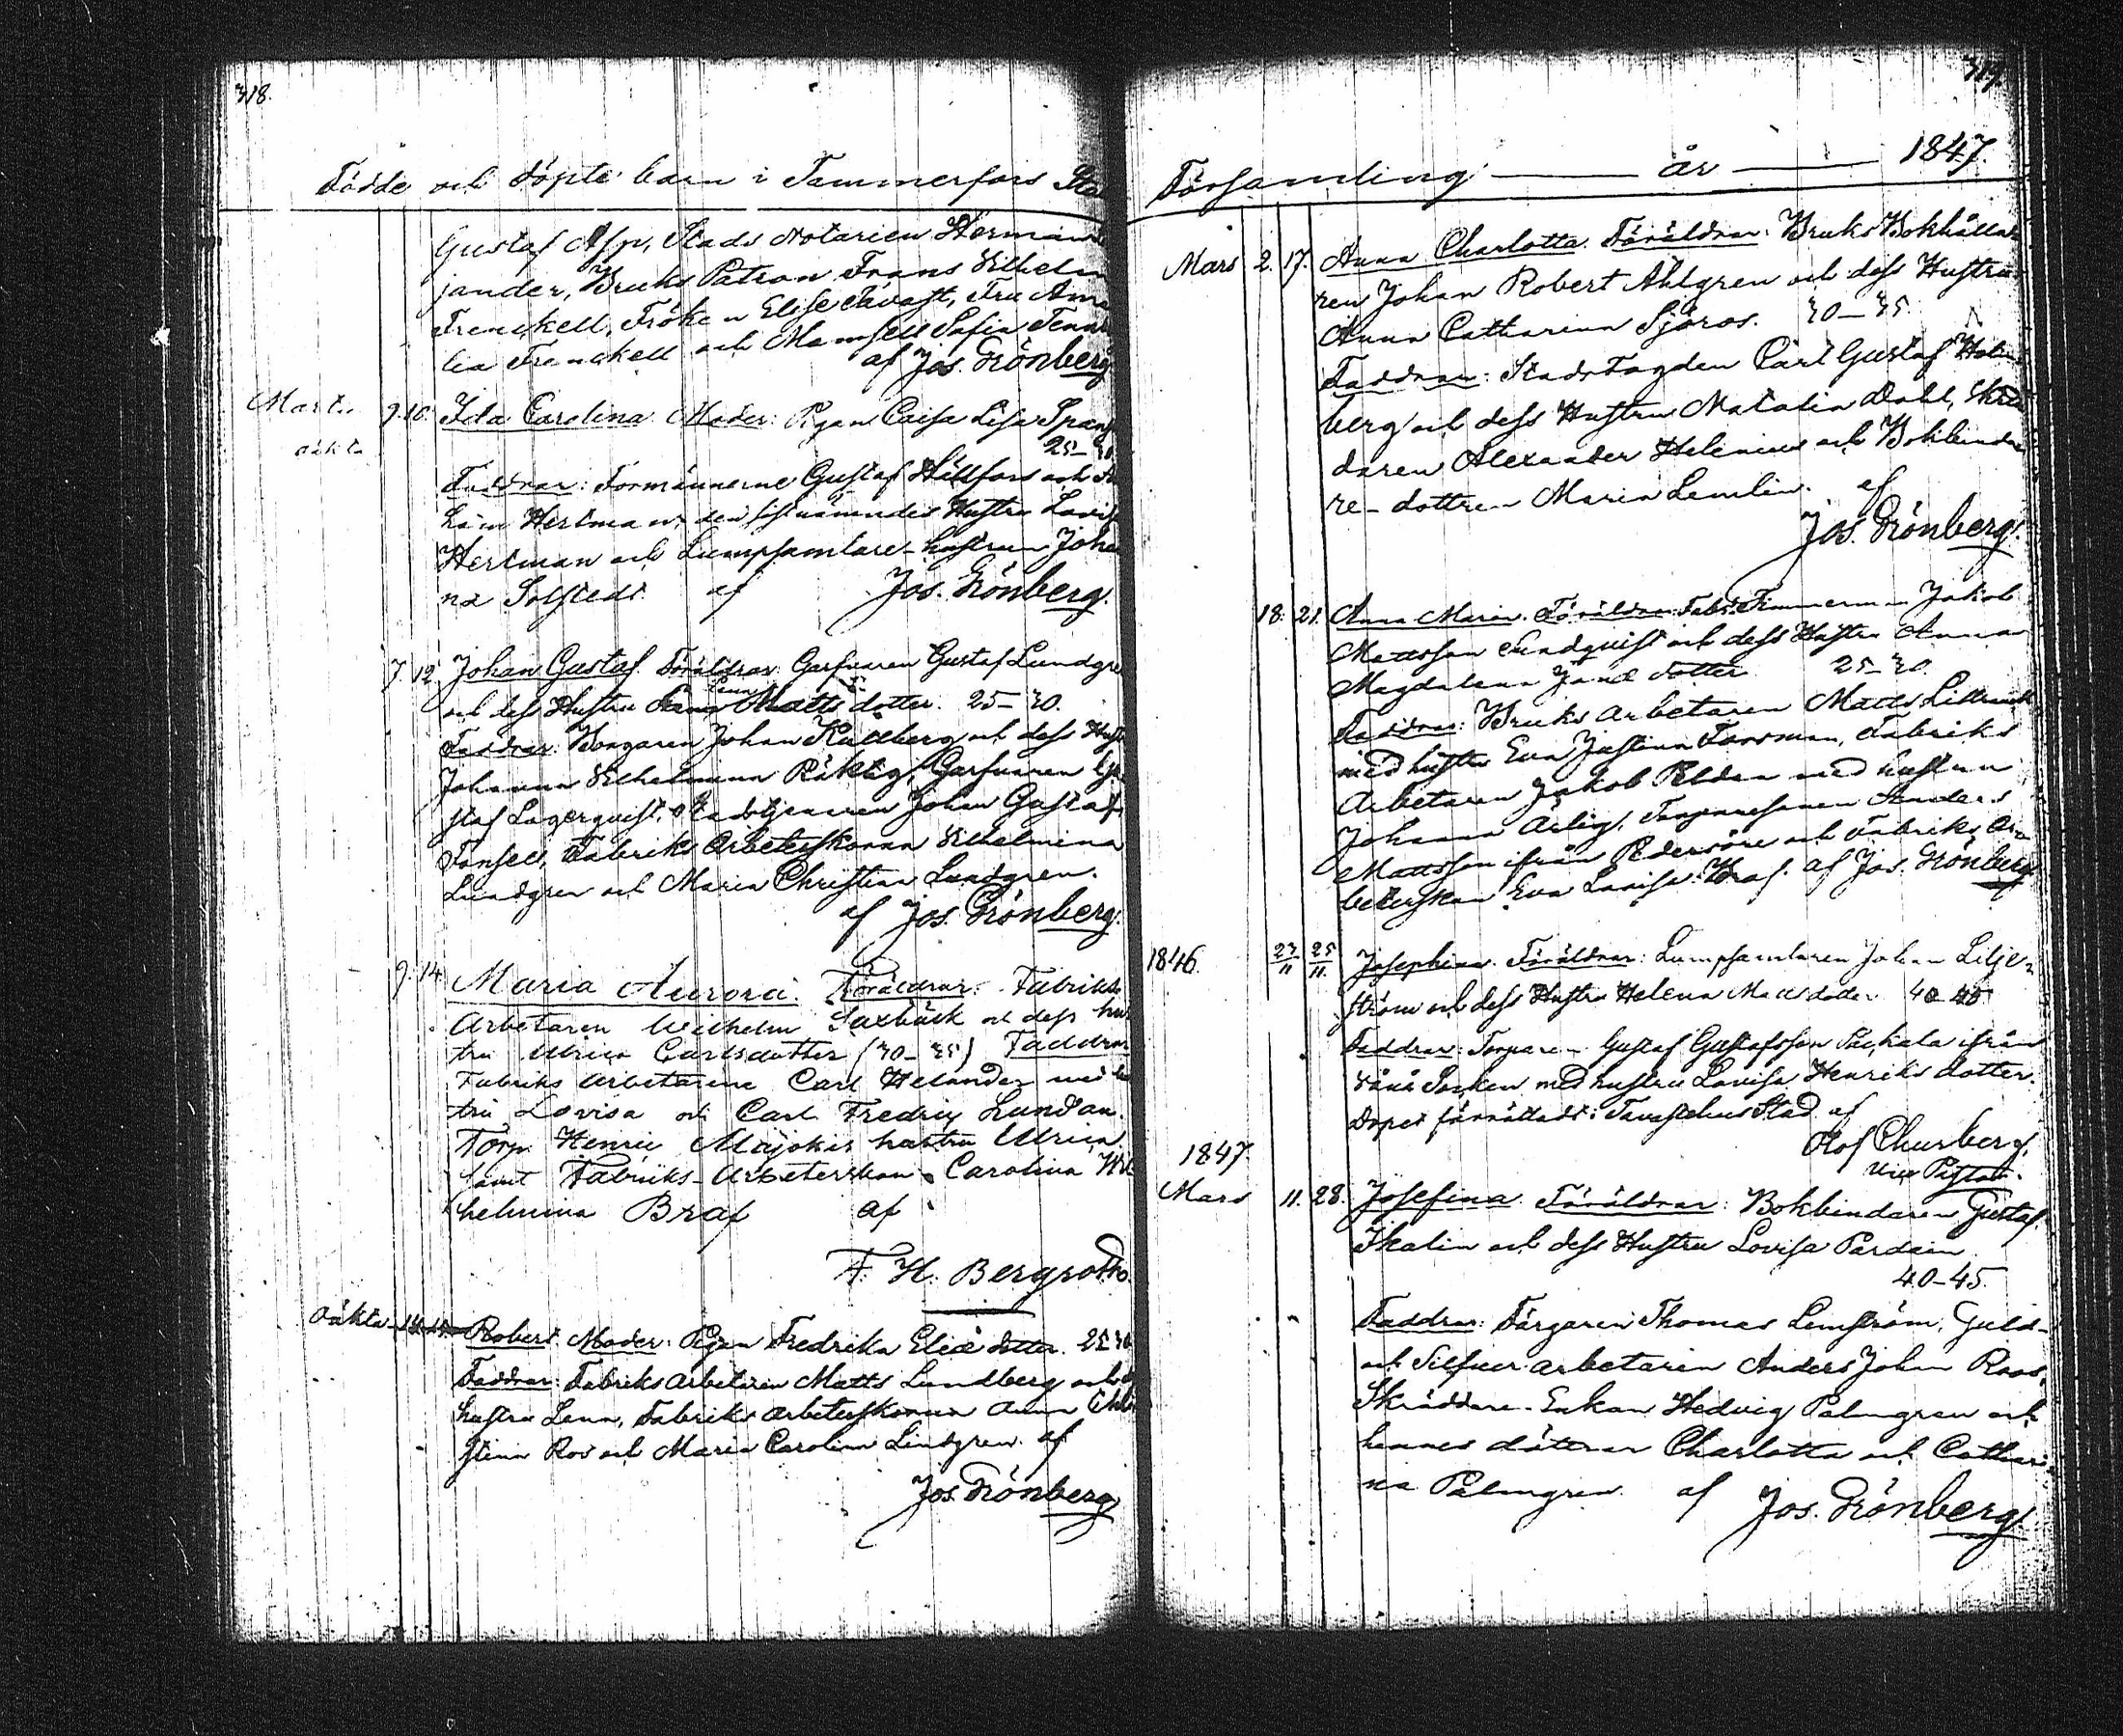 318.
Födde och döpte barn i Tammerfors Sta
Gustaf Asp, Stads Notarien Herman
jander, Bruks Patron Frans Vilhelm
Frenckell, Fröken Elise Tavast, Fru Ama
lia Frenckell och Mamsell Sofia Tenn
af Jos. Grönberg
Martii 9. 10. Ida Carolina. Moder: Pigan Caisa Lisa Spang
oäkta 25-30
Faddrar: Formännerne Gustaf Hällfors och
Hertman den sistnämndes Hustru Lovisa
Hertman och Lumpsamlare-hustrun Johan
na Solstedt af Jos. Grönberg.
7. 12. Johan Gustaf. Föräldrar: Garfvaren Gustaf Lundgre
och dess Hustru Lena Matts dotter. 25-30.
Faddrar: Borgaren Johan Kullberg och dess Hust
Johanna Vilhelmina Räktig, Garfvaren Gu
staf Lagerquist, Johan Gustaf
Fonsell, Fabriks Arbeterskorna Vilhelmina
Lundgren och Maria Christina Lundgren.
af Jos. Grönberg.
9. 14. Maria Aurora. Föräldrar: Fabriks
Arbetaren Wilhelm Saxbäck och dess hus
tru Ulrica Carlsdotter (30-35) Faddrar
Fabriks Arbetarene Carl Helander med hu
tru Lovisa och Carl Fredrig Lundan.
Torp. Henric Majokis hustru Ulrica
samt Fabriks-Arbeterskan Carolina Wil
helmina Braf af
F. H. Bergroth.
oäkta 14. Robert. Moder: Pigan Fredrika Elias dotter. 25-30
Faddrar: Fabriks Arbetaren Matts Lundberg och
hustru Lena, Fabriks Arbeterskorna Anna Chri
stina Ros och Maria Carolina Lindgren. af
Jos. Grönberg
319.
Församling år 1847.
Mars 2. 17. Anna Charlotta. Föräldrar: Bruks Bokhålla
ren Johan Robert Ahlgren och dess Hustru
Anna Catharina Sjöros. 30-35.
Faddrar: Stadsfogden Carl Gustaf Holm
berg och dess Hustru Natalia Dahl, Skräd
daren Alexander Helenius och Bokbinda
re-dottren Maria Lemlin. af
Jos. Grönberg.
18. 21. Anna Maria. Föräldrar: Fabr. Timmerman Jakob
Mattsson Sundqvist och dess Hustru Anna
Magdalena dotter 25-30.
Faddrar: Bruks Arbetaren Matts
med hustru Eva Justina Forsman, Fabriks
Arbetaren Jakob Peldan med hustru
Johanna Ärlig, Torparesonen Anders
Mattsson ifrån Pedersöre och Fabriks Ar
beterskan Eva Lovisa Braf. af Jos. Grönberg
1846. 23/11 25/11. Josephina. Föräldrar: Lumpsamlaren Johan Lilje-
ström och dess Hustru Helena Matts dotter. 40-45
Faddrar: Torparen Gustaf Gustafsson ifrån
Vånå Socken med hustru Lovisa Henriks dotter.
Dopet förrättadt i Tavastehus Stad af
Olof Churberg,
Vice Pastor.
1847.
Mars 11. 28. Josefina. Föräldrar: Bokbindaren Gustaf
Skalin och dess Hustru Lovisa Pardain
40-45.
Faddrar: Färgaren Thomas Lemström, Guld-
och Silfver-arbetaren Anders Johan Roos,
Skräddare-Enkan Hedvig Palmgren och
hennes döttrar Charlotta och Cathari
na Palmgren. af Jos. Grönberg.